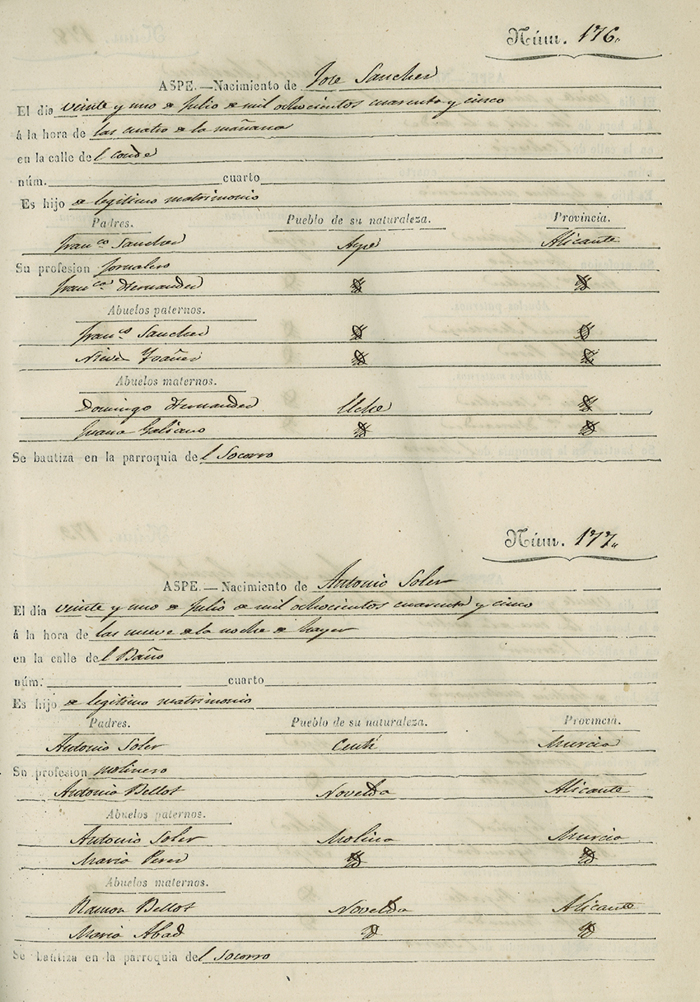 Núm. 176.
ASPE.—Nacimiento de Jose Sanchez
El dia veinte y uno de Julio de mil ochocientos cuarenta y cinco
á la hora de las cuatro de la mañana
en la calle del Conde
núm. cuarto
Es hijo de legitimo matrimonio
Padres. Pueblo de su naturaleza. Provincia.
Franco Sanchez Aspe Alicante
Su profesion Jornalero
Franca Hernandez
Abuelos paternos.
Franco Sanchez
Nieves Yvañez
Abuelos maternos.
Domingo Hernandez Elche
Juana Galiano
Se bautiza en la parroquia del Socorro
Núm. 177.
ASPE.—Nacimiento de Antonio Soler
El dia veinte y uno de Julio de mil ochocientos cuarenta y cinco
á la hora de las nueve de la noche de hayer
en la calle del Baño
núm. cuarto
Es hijo de legitimo matrimonio
Padres. Pueblo de su naturaleza. Provincia.
Antonio Soler Ceuti Murcia
Su profesion molinero
Antonia Bellot Novelda Alicante
Abuelos paternos.
Antonio Soler Molina Murcia
Maria Perez
Abuelos maternos.
Ramon Bellot Novelda Alicante
Maria Abad
Se bautiza en la parroquia del Socorro